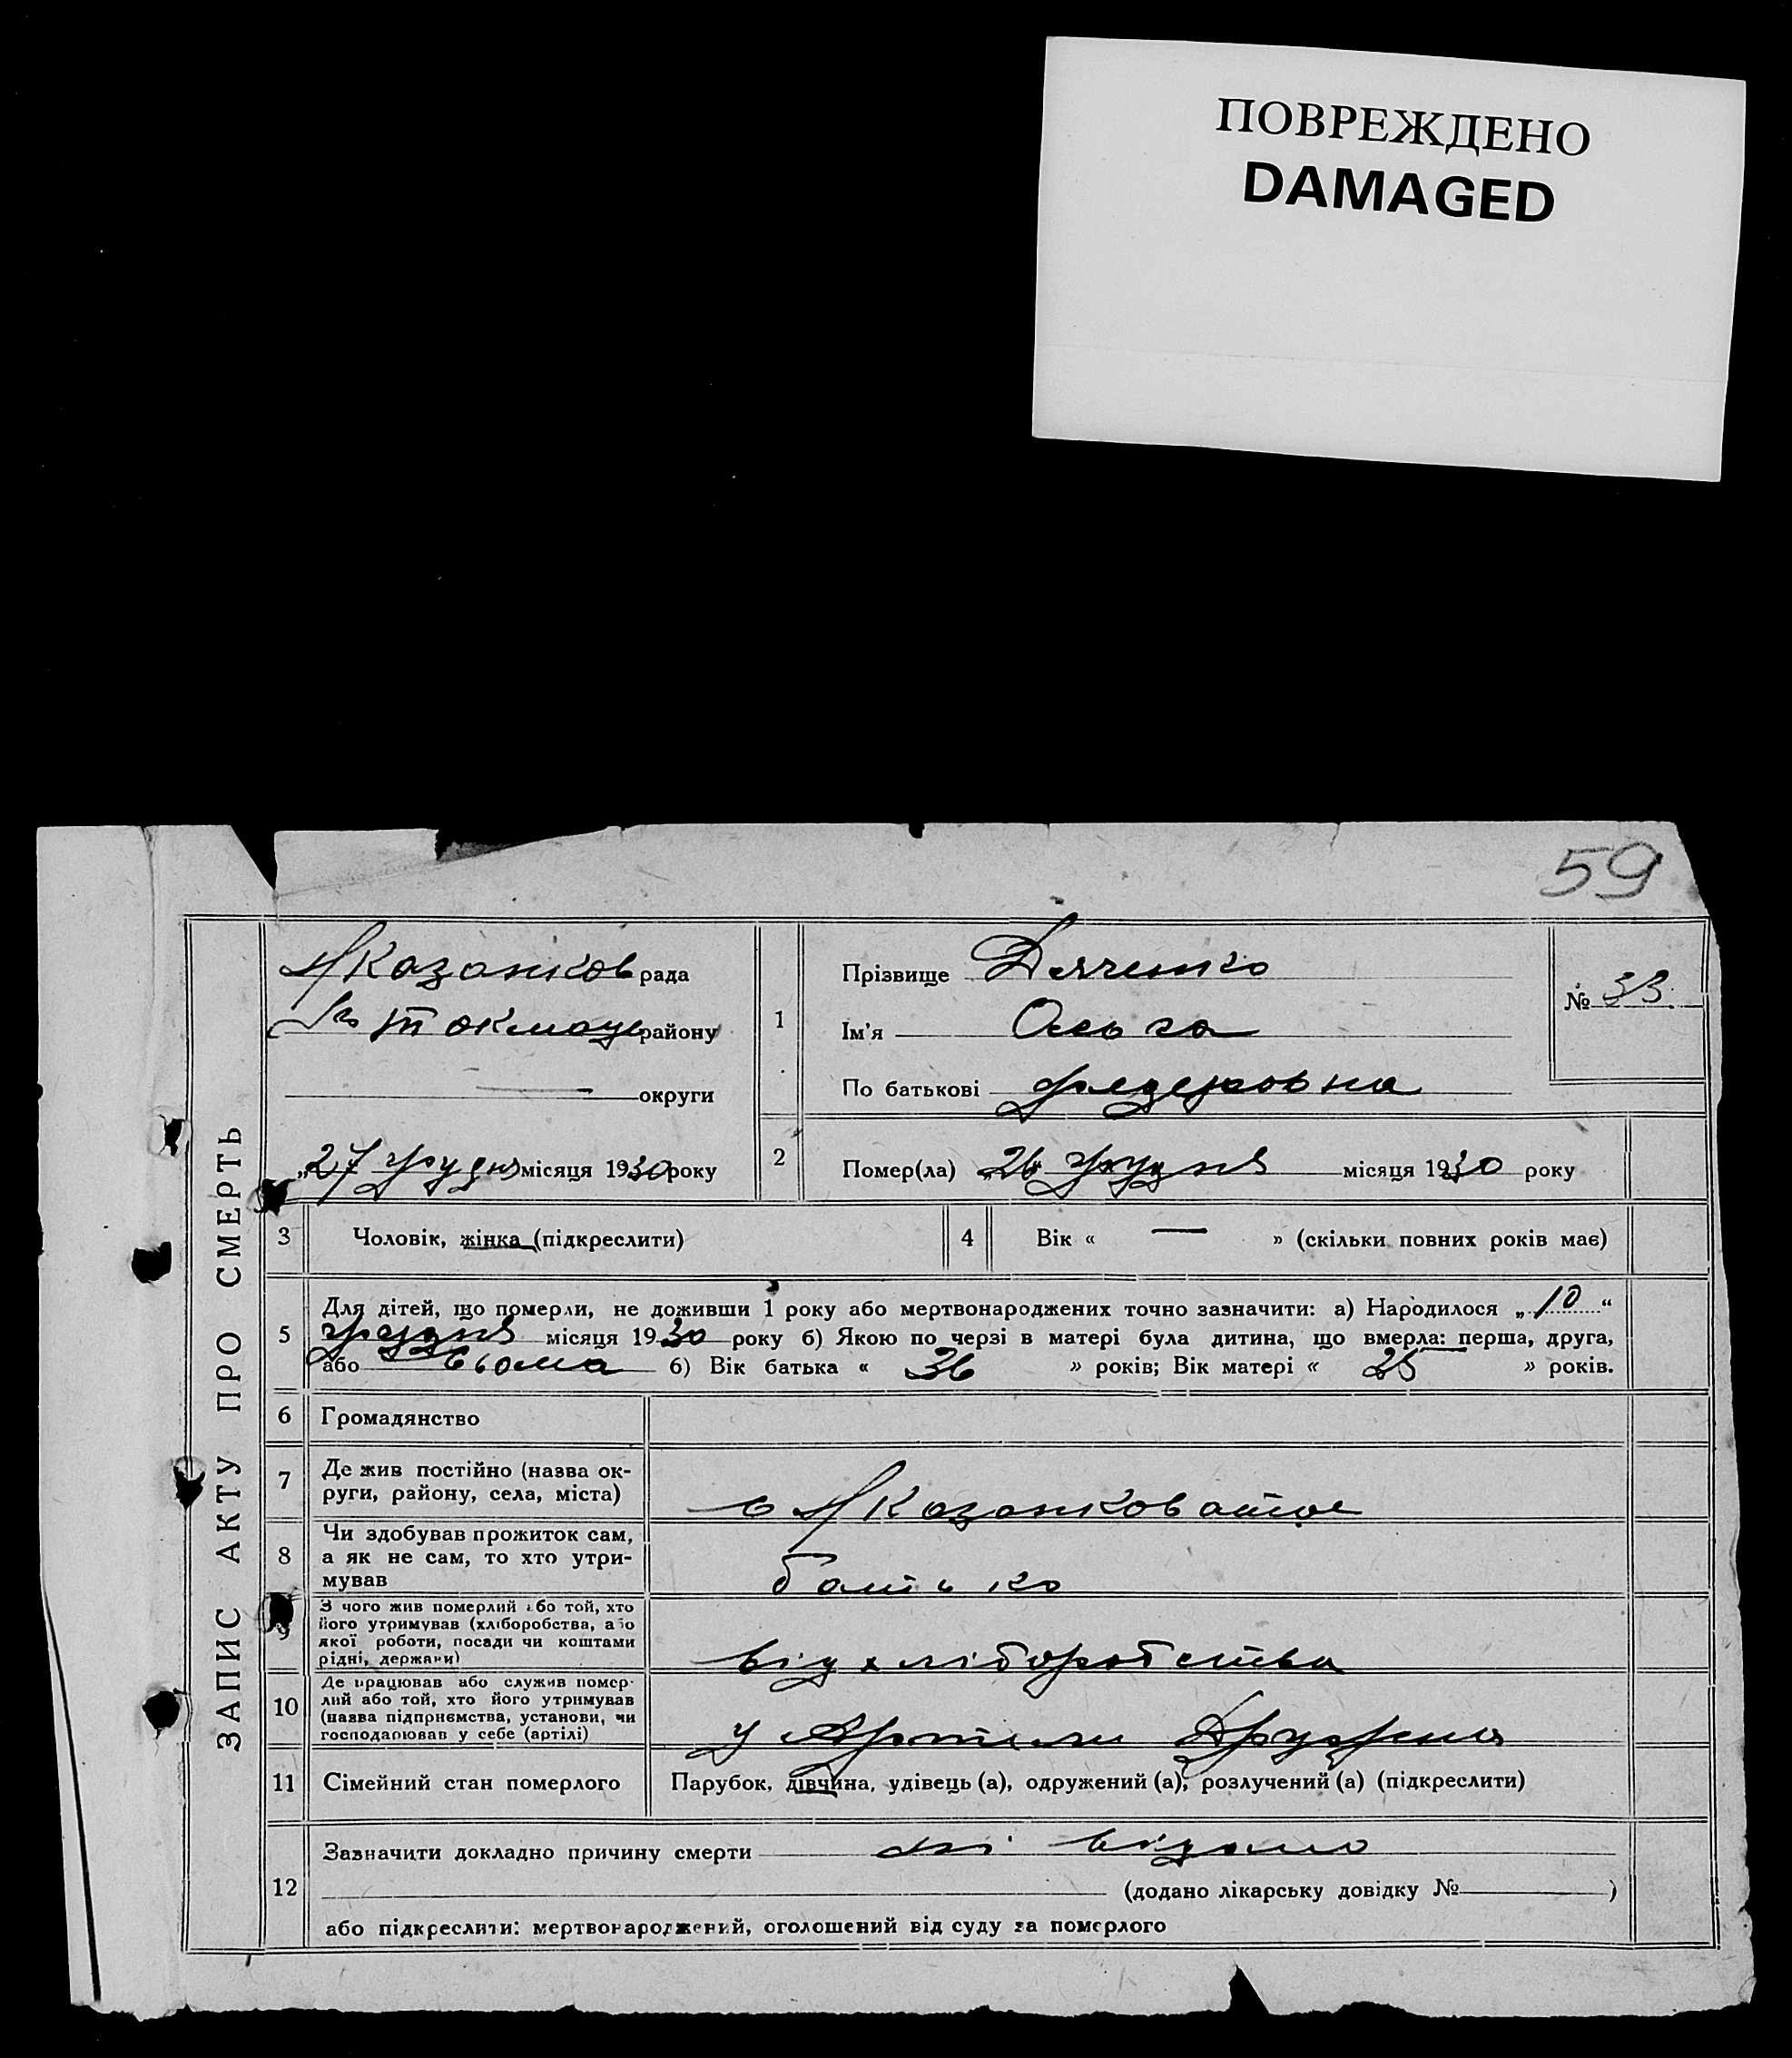 ПОВРЕЖДЕНО
DAMAGED
59
ЗАПИС АКТУ ПРО СМЕРТЬ
Н Казанков рада
В Токмаць району
— округи
„27 грудня місяця 1930 року
1
Прізвище Дяченко
Ім'я Ольга
По батькові Федеровна
№ 33
2
Помер(ла) „26" грудня місяця 1930 року
3 Чоловік, жінка (підкреслити)
4 Вік « — » (скільки повних років має)
5 Для дітей, що померли, не доживши 1 року або мертвонароджених точно зазначити: а) Народилося „10"
грудня місяця 1930 року б) Якою по черзі в матері була дитина, що вмерла: перша, друга,
або 6) Вік батька « 36 » років; Вік матері « 25 » років.
6 Громадянство
7 Де жив постійно (назва ок-
руги, району, села, міста)
с Н Казанковатое
8 Чи здобував прожиток сам,
а як не сам, то хто утри-
мував
батько
9 З чого жив померлий або той, хто
його утримував (хліборобства, або
якої роботи, посади чи коштами
рідні, держави)
від хліборобства
10 Де працював або служив помер-
лий або той, хто його утримував
(назва підприємства, установи, чи
господарював у себе (артілі)
у Артили Дружня
11 Сімейний стан померлого
Парубок, дівчина, удівець (а), одружений (а), розлучений (а) (підкреслити)
12 Зазначити докладно причину смерти ні відомо
(додано лікарську довідку № )
або підкреслити: мертвонароджений, оголошений від суду за померлого